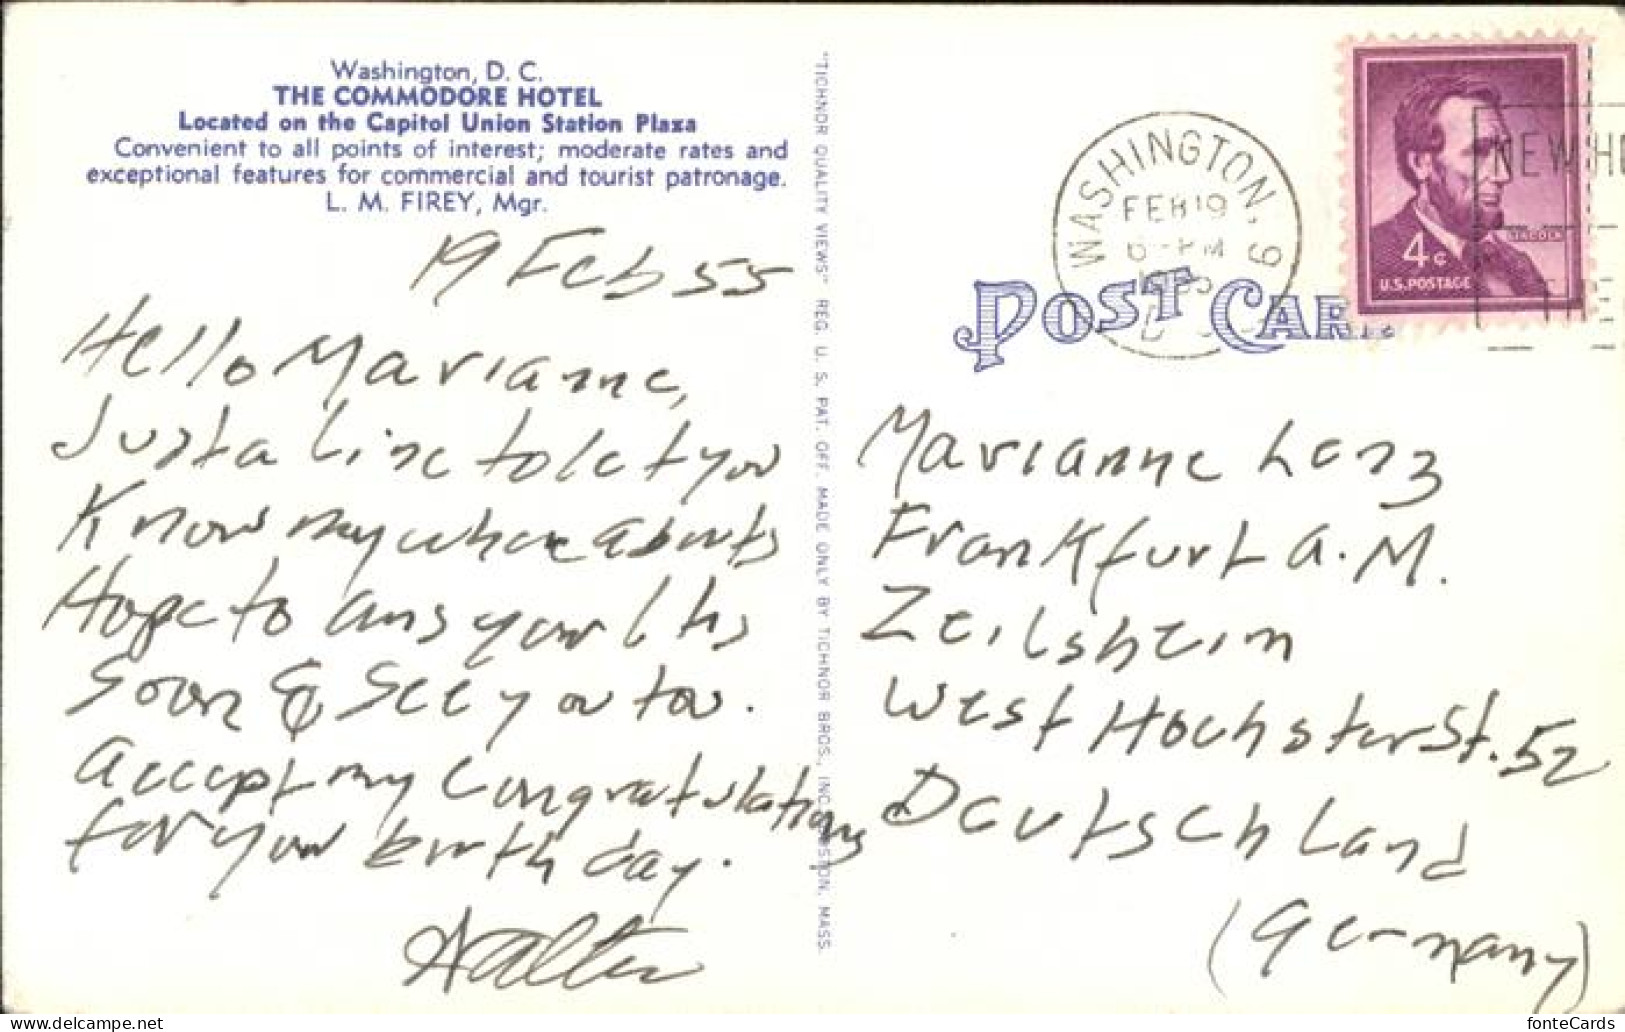 Washington, D. C.
THE COMMODORE HOTEL
Located on the Capitol Union Station Plaza
Convenient to all points of interest; moderate rates and
exceptional features for commercial and tourist patronage.
L. M. FIREY, Mgr.
19 Feb 55
Hello Marianne,
Just a line to let you
Know my where abouts
Hope to ans your ltrs
Soon & See you too.
Accept my Congratulations
for your birth day.
Walter
"TICHNOR QUALITY VIEWS" REG. U. S. PAT. OFF. MADE ONLY BY TICHNOR BROS., INC. BOSTON, MASS.
WASHINGTON, 9
FEB 19
PM
4¢
LINCOLN
U.S. POSTAGE
NEW
POST CARD
Marianne Lenz
Frankfurt a. M.
Zeilsheim
West Hochster St. 52
Deutschland
(Germany)
fonteCards